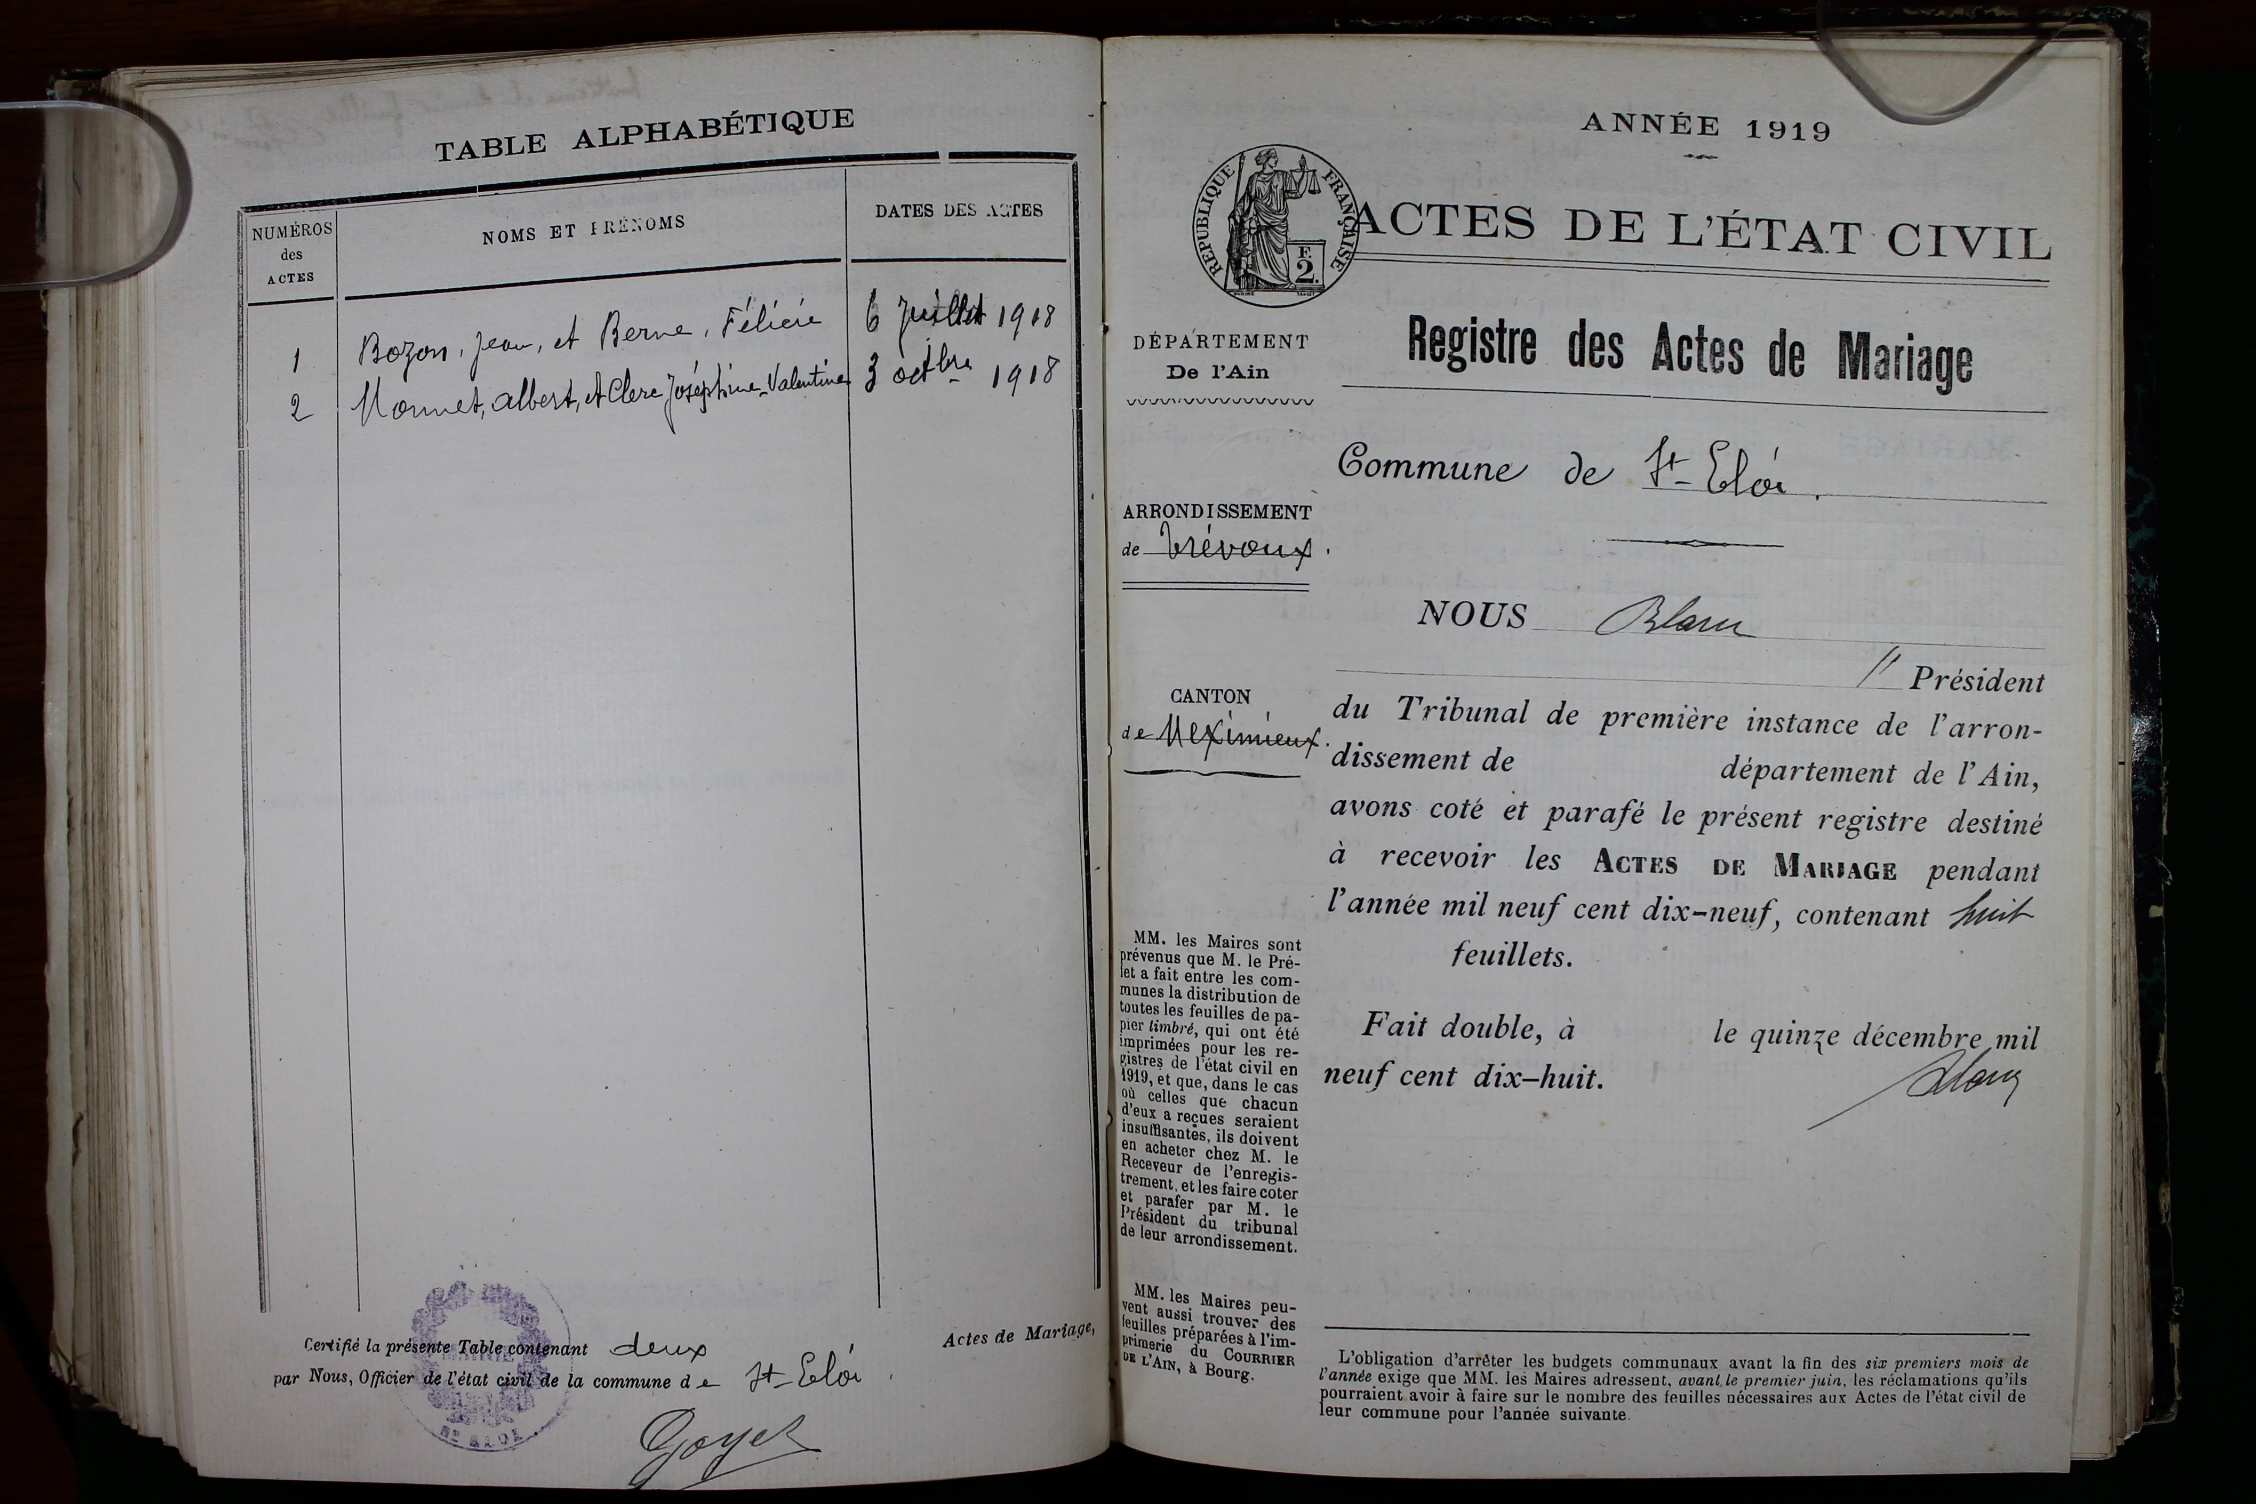 TABLE ALPHABÉTIQUE
NUMÉROS
des
ACTES
NOMS ET PRÉNOMS
DATES DES ACTES
1 Bozon, Jean, et Berne, Félicie 6 Juillet 1918
2 Monnet, Albert, et Clerc Joséphine-Valentine 3 octbre 1918
Certifié la présente Table contenant deux Actes de Mariage,
par Nous, Officier de l'état civil de la commune de St-Eloi.
Goyet
MAIRIE
ST ELOI
ANNÉE 1919
RÉPUBLIQUE FRANÇAISE
F.
2.
ACTES DE L'ÉTAT CIVIL
Registre des Actes de Mariage
DÉPARTEMENT
De l'Ain
Commune de St-Eloi.
ARRONDISSEMENT
de Trévoux.
CANTON
de Meximieux.
NOUS Blanc
" Président
du Tribunal de première instance de l'arron-
dissement de département de l'Ain,
avons coté et parafé le présent registre destiné
à recevoir les ACTES DE MARIAGE pendant
l'année mil neuf cent dix-neuf, contenant huit
feuillets.
Fait double, à le quinze décembre mil
neuf cent dix-huit.
Blanc
MM. les Maires sont
prévenus que M. le Pré-
fet a fait entre les com-
munes la distribution de
toutes les feuilles de pa-
pier timbré, qui ont été
imprimées pour les re-
gistres de l'état civil en
1919, et que, dans le cas
où celles que chacun
d'eux a reçues seraient
insuffisantes, ils doivent
en acheter chez M. le
Receveur de l'enregis-
trement, et les faire coter
et parafer par M. le
Président du tribunal
de leur arrondissement.
MM. les Maires peu-
vent aussi trouver des
feuilles préparées à l'im-
primerie du COURRIER
DE L'AIN, à Bourg.
L'obligation d'arrêter les budgets communaux avant la fin des six premiers mois de
l'année exige que MM. les Maires adressent, avant le premier juin, les réclamations qu'ils
pourraient avoir à faire sur le nombre des feuilles nécessaires aux Actes de l'état civil de
leur commune pour l'année suivante.